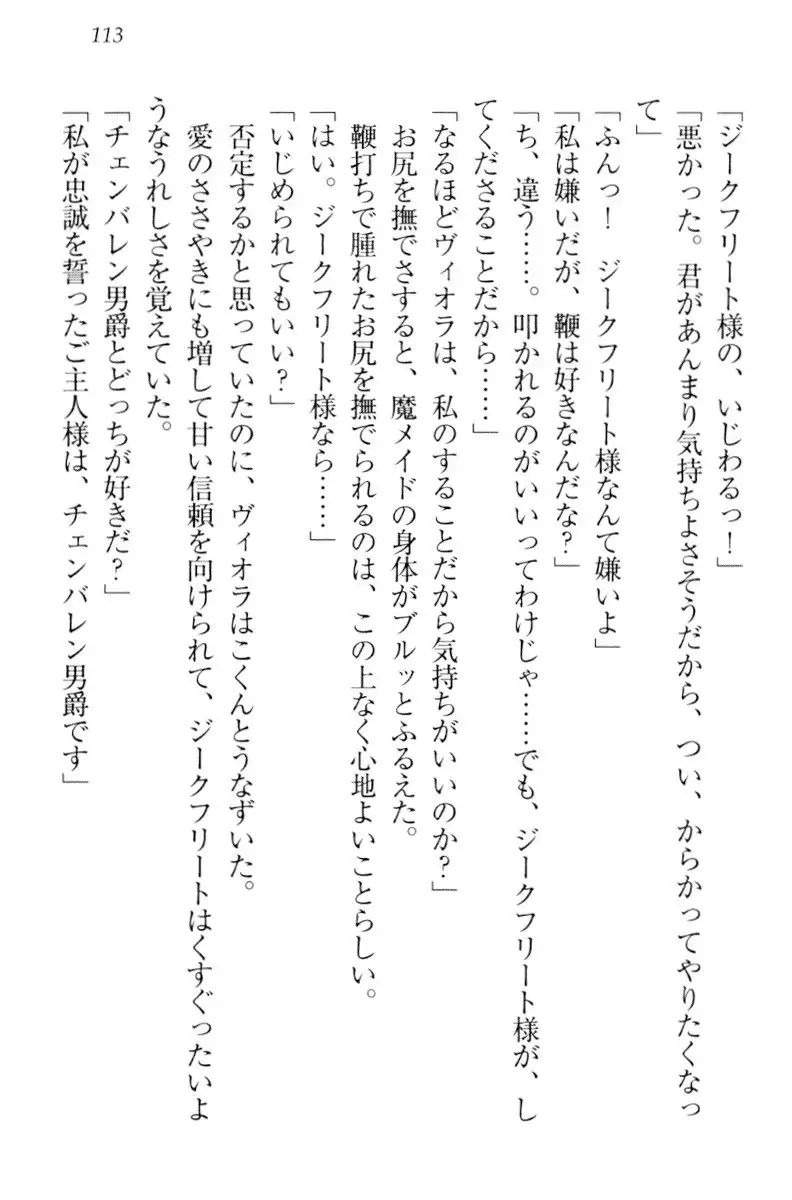 113
「ジークフリート様の、いじわるっ！」
「悪かった。君があんまり気持ちよさそうだから、つい、からかってやりたくなっ
て」
「ふんっ！　ジークフリート様なんて嫌いよ」
「私は嫌いだが、鞭は好きなんだな？」
「ち、違う……。叩かれるのがいいってわけじゃ……でも、ジークフリート様が、し
てくださることだから……」
「なるほどヴィオラは、私のすることだから気持ちがいいのか？」
お尻を撫でさすると、魔メイドの身体がブルッとふるえた。
鞭打ちで腫れたお尻を撫でられるのは、この上なく心地よいことらしい。
「はい。ジークフリート様なら……」
「いじめられてもいい？」
否定するかと思っていたのに、ヴィオラはこくんとうなずいた。
愛のささやきにも増して甘い信頼を向けられて、ジークフリートはくすぐったいよ
うなうれしさを覚えていた。
「チェンバレン男爵とどっちが好きだ？」
「私が忠誠を誓ったご主人様は、チェンバレン男爵です」